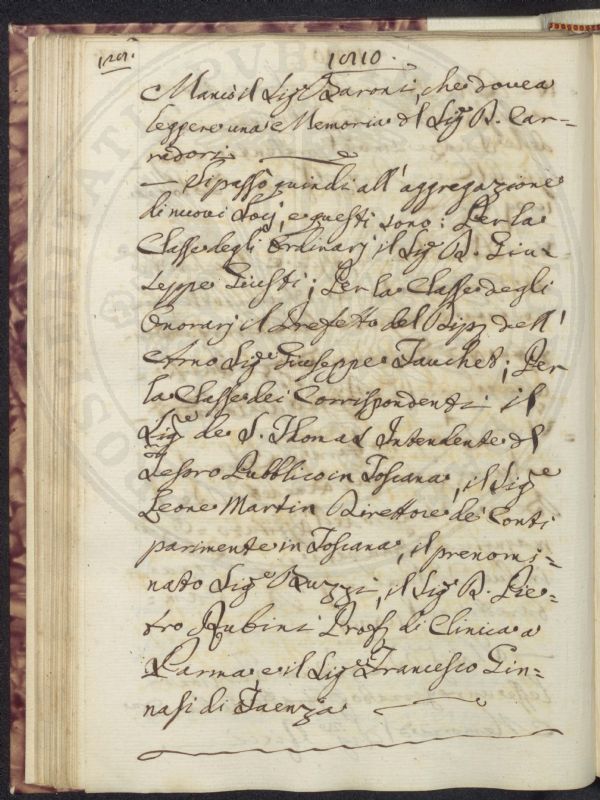 1810.
Mancò il Sig.e Baroni, che dovea
leggere una Memoria del Sig.e D. Car=
radori.
— Si passò quindi all'aggregazione
di nuovi Socj, e questi sono: Per la
Classe degli Ordinarj il Sig.e D. Giu=
seppe Giusti; Per la Classe degli
Onorarj il Prefetto del Dip. dell'
Arno Sig.e Giuseppe Fauchet; Per
la Classe dei Corrispondenti il
Sig.e de S. Thomas Intendente del
Tesoro Pubblico in Toscana, il Sig.e
Leone Martin Direttore de' Conti
parimente in Toscana, il prenomi=
nato Sig.e Buzzi, il Sig.e D. Pie=
tro Rubini Prof. di Clinica a
Parma, e il Sig.e Francesco Gin=
nasi di Faenza